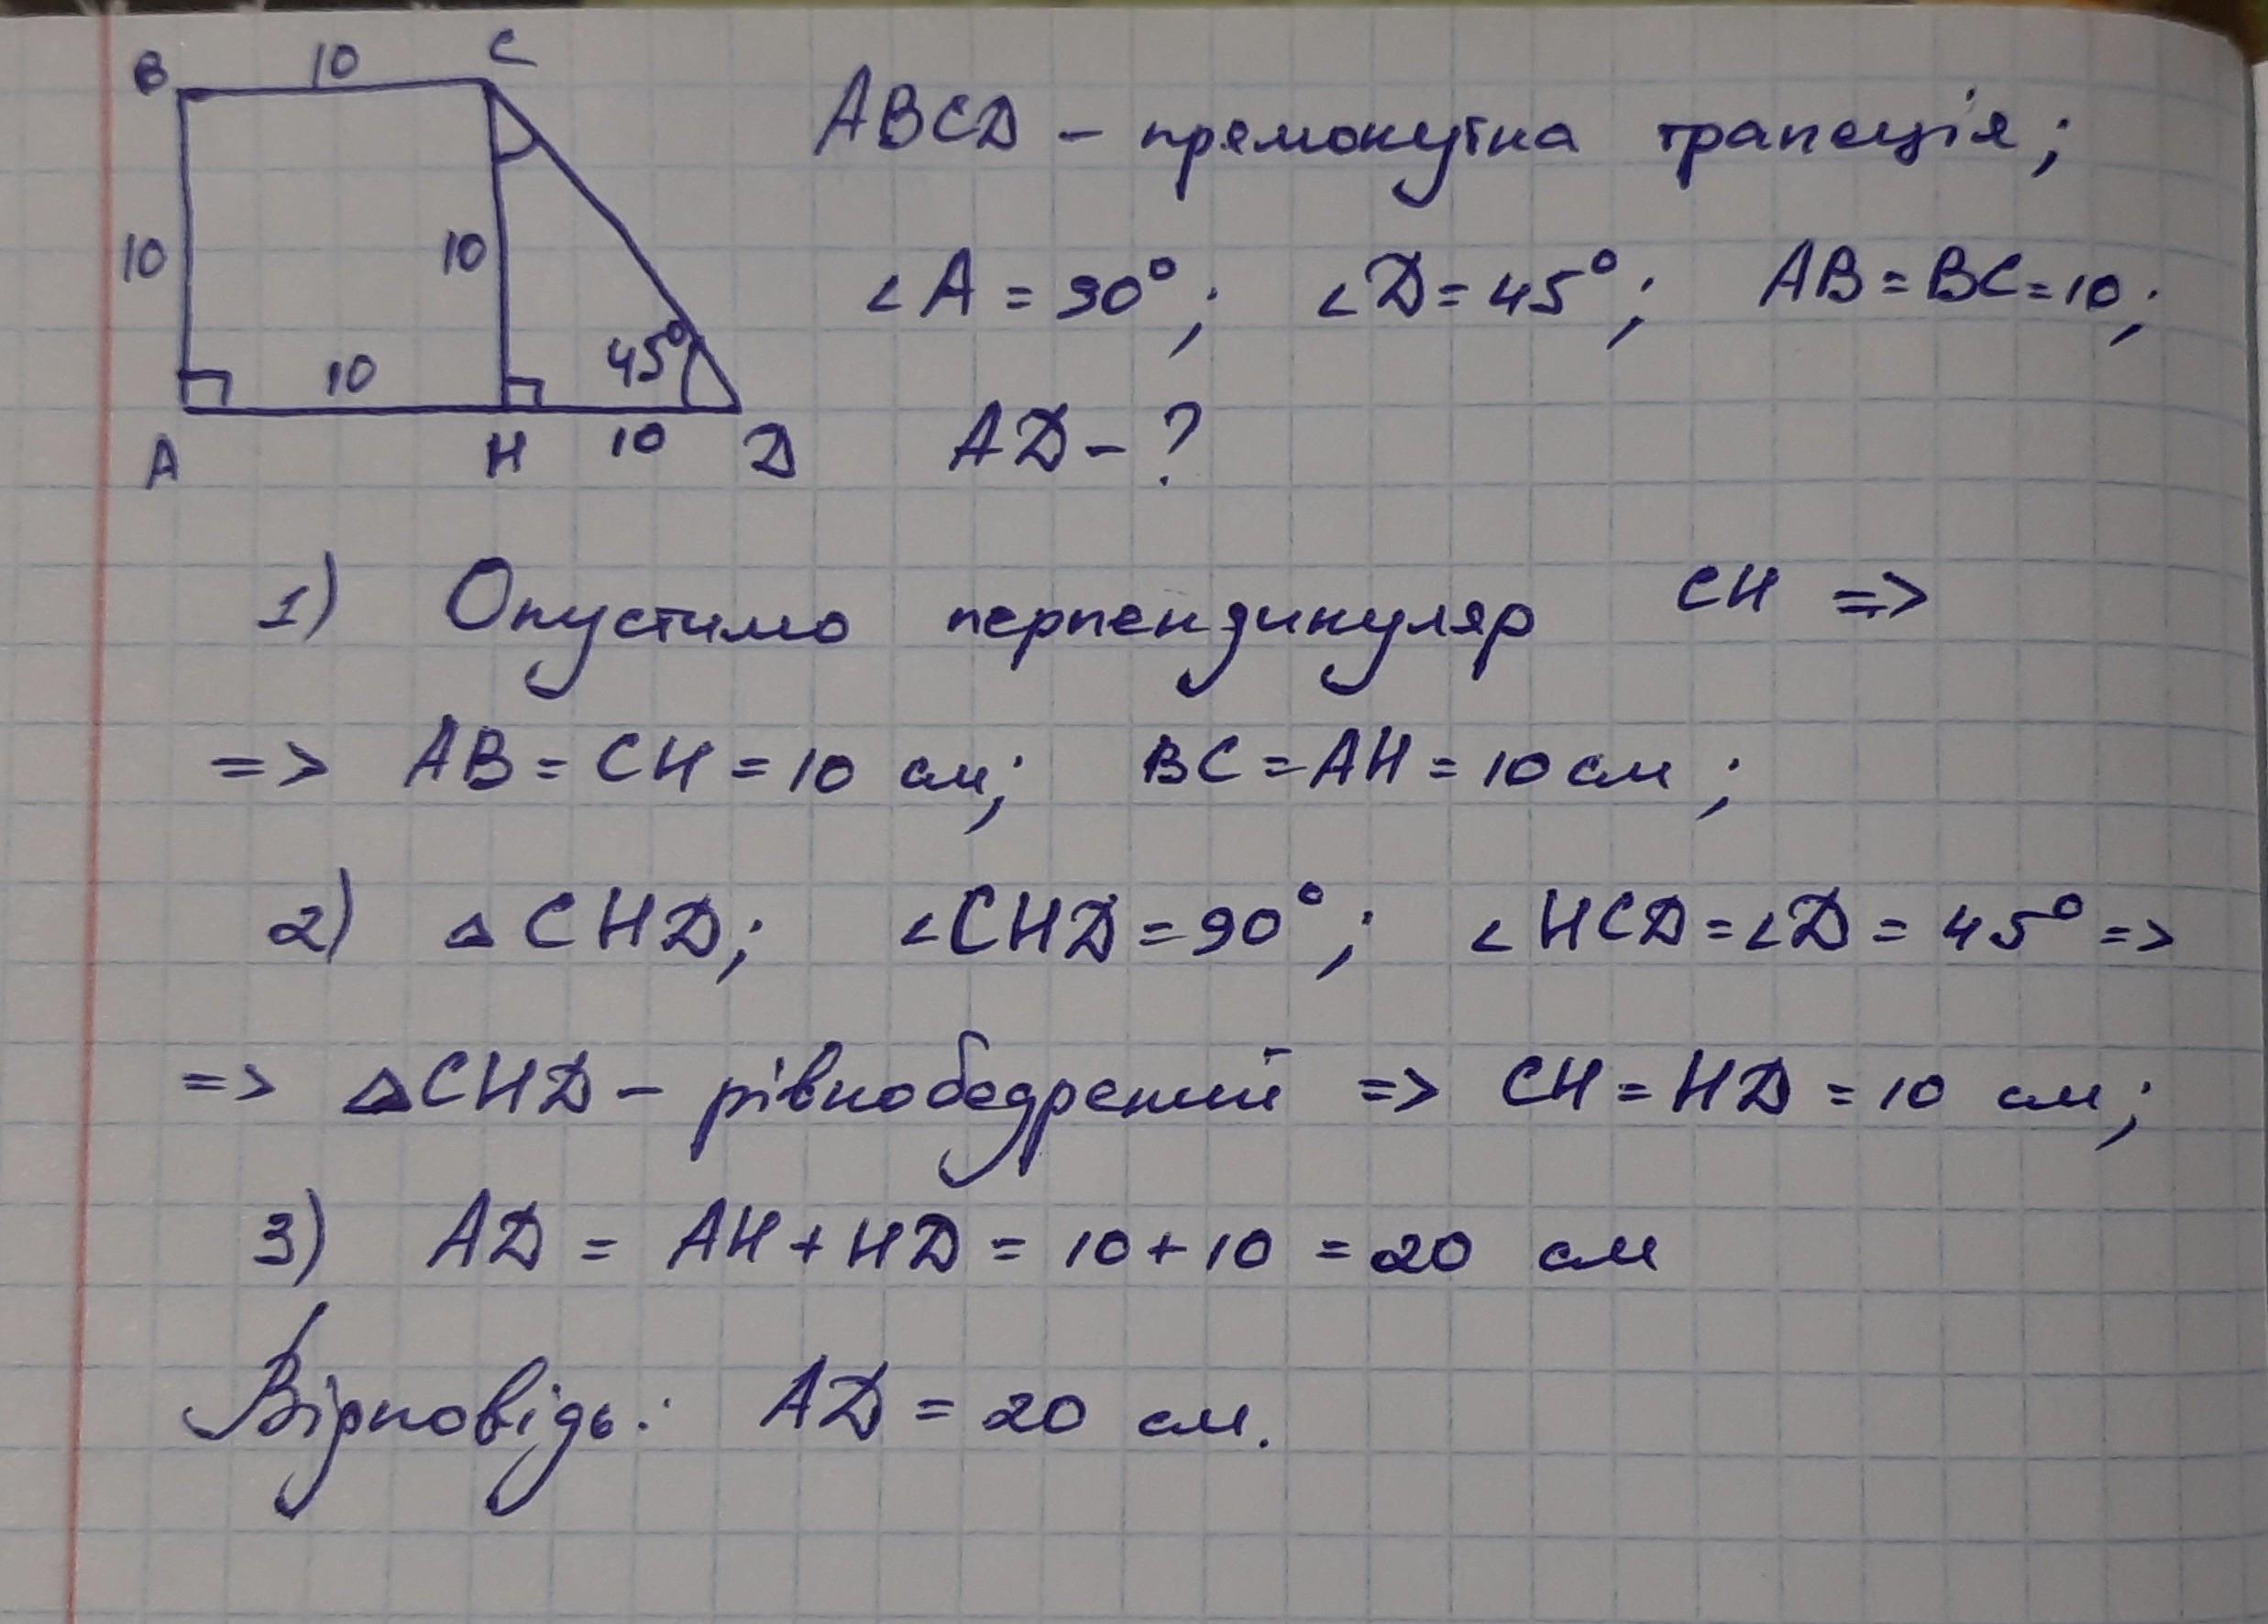 B 10 C
10 10
10 45°
A H 10 D
ABCD – прямокутна трапеція;
∠A = 90°; ∠D = 45°; AB = BC = 10;
AD – ?
1) Опустимо перпендикуляр CH =>
=> AB = CH = 10 см; BC = AH = 10 см;
2) △CHD; ∠CHD = 90°; ∠HCD = ∠D = 45° =>
=> △CHD – рівнобедрений => CH = HD = 10 см;
3) AD = AH + HD = 10 + 10 = 20 см
Відповідь: AD = 20 см.